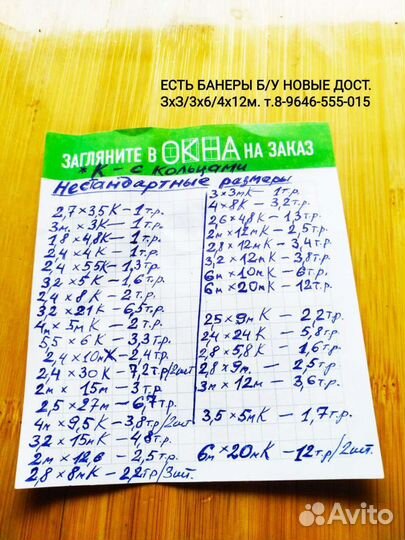 ЕСТЬ БАНЕРЫ Б/У НОВЫЕ ДОСТ.
3x3/3x6/4x12м. т.8-9646-555-015
ЗАГЛЯНИТЕ В ОКНА НА ЗАКАЗ
*К - с кольцами
Нестандартные размеры
2,7×3,5К - 1т.р.
3м × 3К - 1т.р.
1,8 × 4,8К - 1т.р.
2,4 × 4К - 1т.р.
2,4 × 5,5К - 1,3т.р.
3,2 × 5К - 1,6т.р.
2,4 × 8К - 2т.р.
3,2 × 21К - 6,5т.р.
4м × 5мК - 2т.р.
5,5 × 6К - 3,3т.р.
2,4 × 10мК - 2,4т.р.
2,4 × 30К - 7,2т.р/2шт
2м × 15м - 3т.р.
2,5 × 27м - 6,7т.р.
4м × 9,5К - 3,8т.р/2шт
3,2 × 15мК - 4,8т.р.
2м × 12,6 - 2,5т.р.
2,8 × 8мК - 2,2тр/3шт.
3×3мК - 1т.р.
4 × 8К - 3,2т.р.
2,6 × 4,8К - 1,3т.р.
2м × 12мК - 2,5т.р.
2,8 × 12мК - 3,4т.р.
3,2 × 12мК - 3,8т.р.
6м × 10мК - 6т.р.
6м × 20мК - 12т.р.
2,5 × 9мК - 2,2т.р.
2,4 × 24К - 5,8т.р.
2,8 × 5,8К - 1,6т.р.
2,8 × 9м - 2,5т.р.
3м × 12м - 3,6т.р.
3,5 × 5мК - 1,7т.р.
6м × 20мК - 12тр/2шт.
Avito